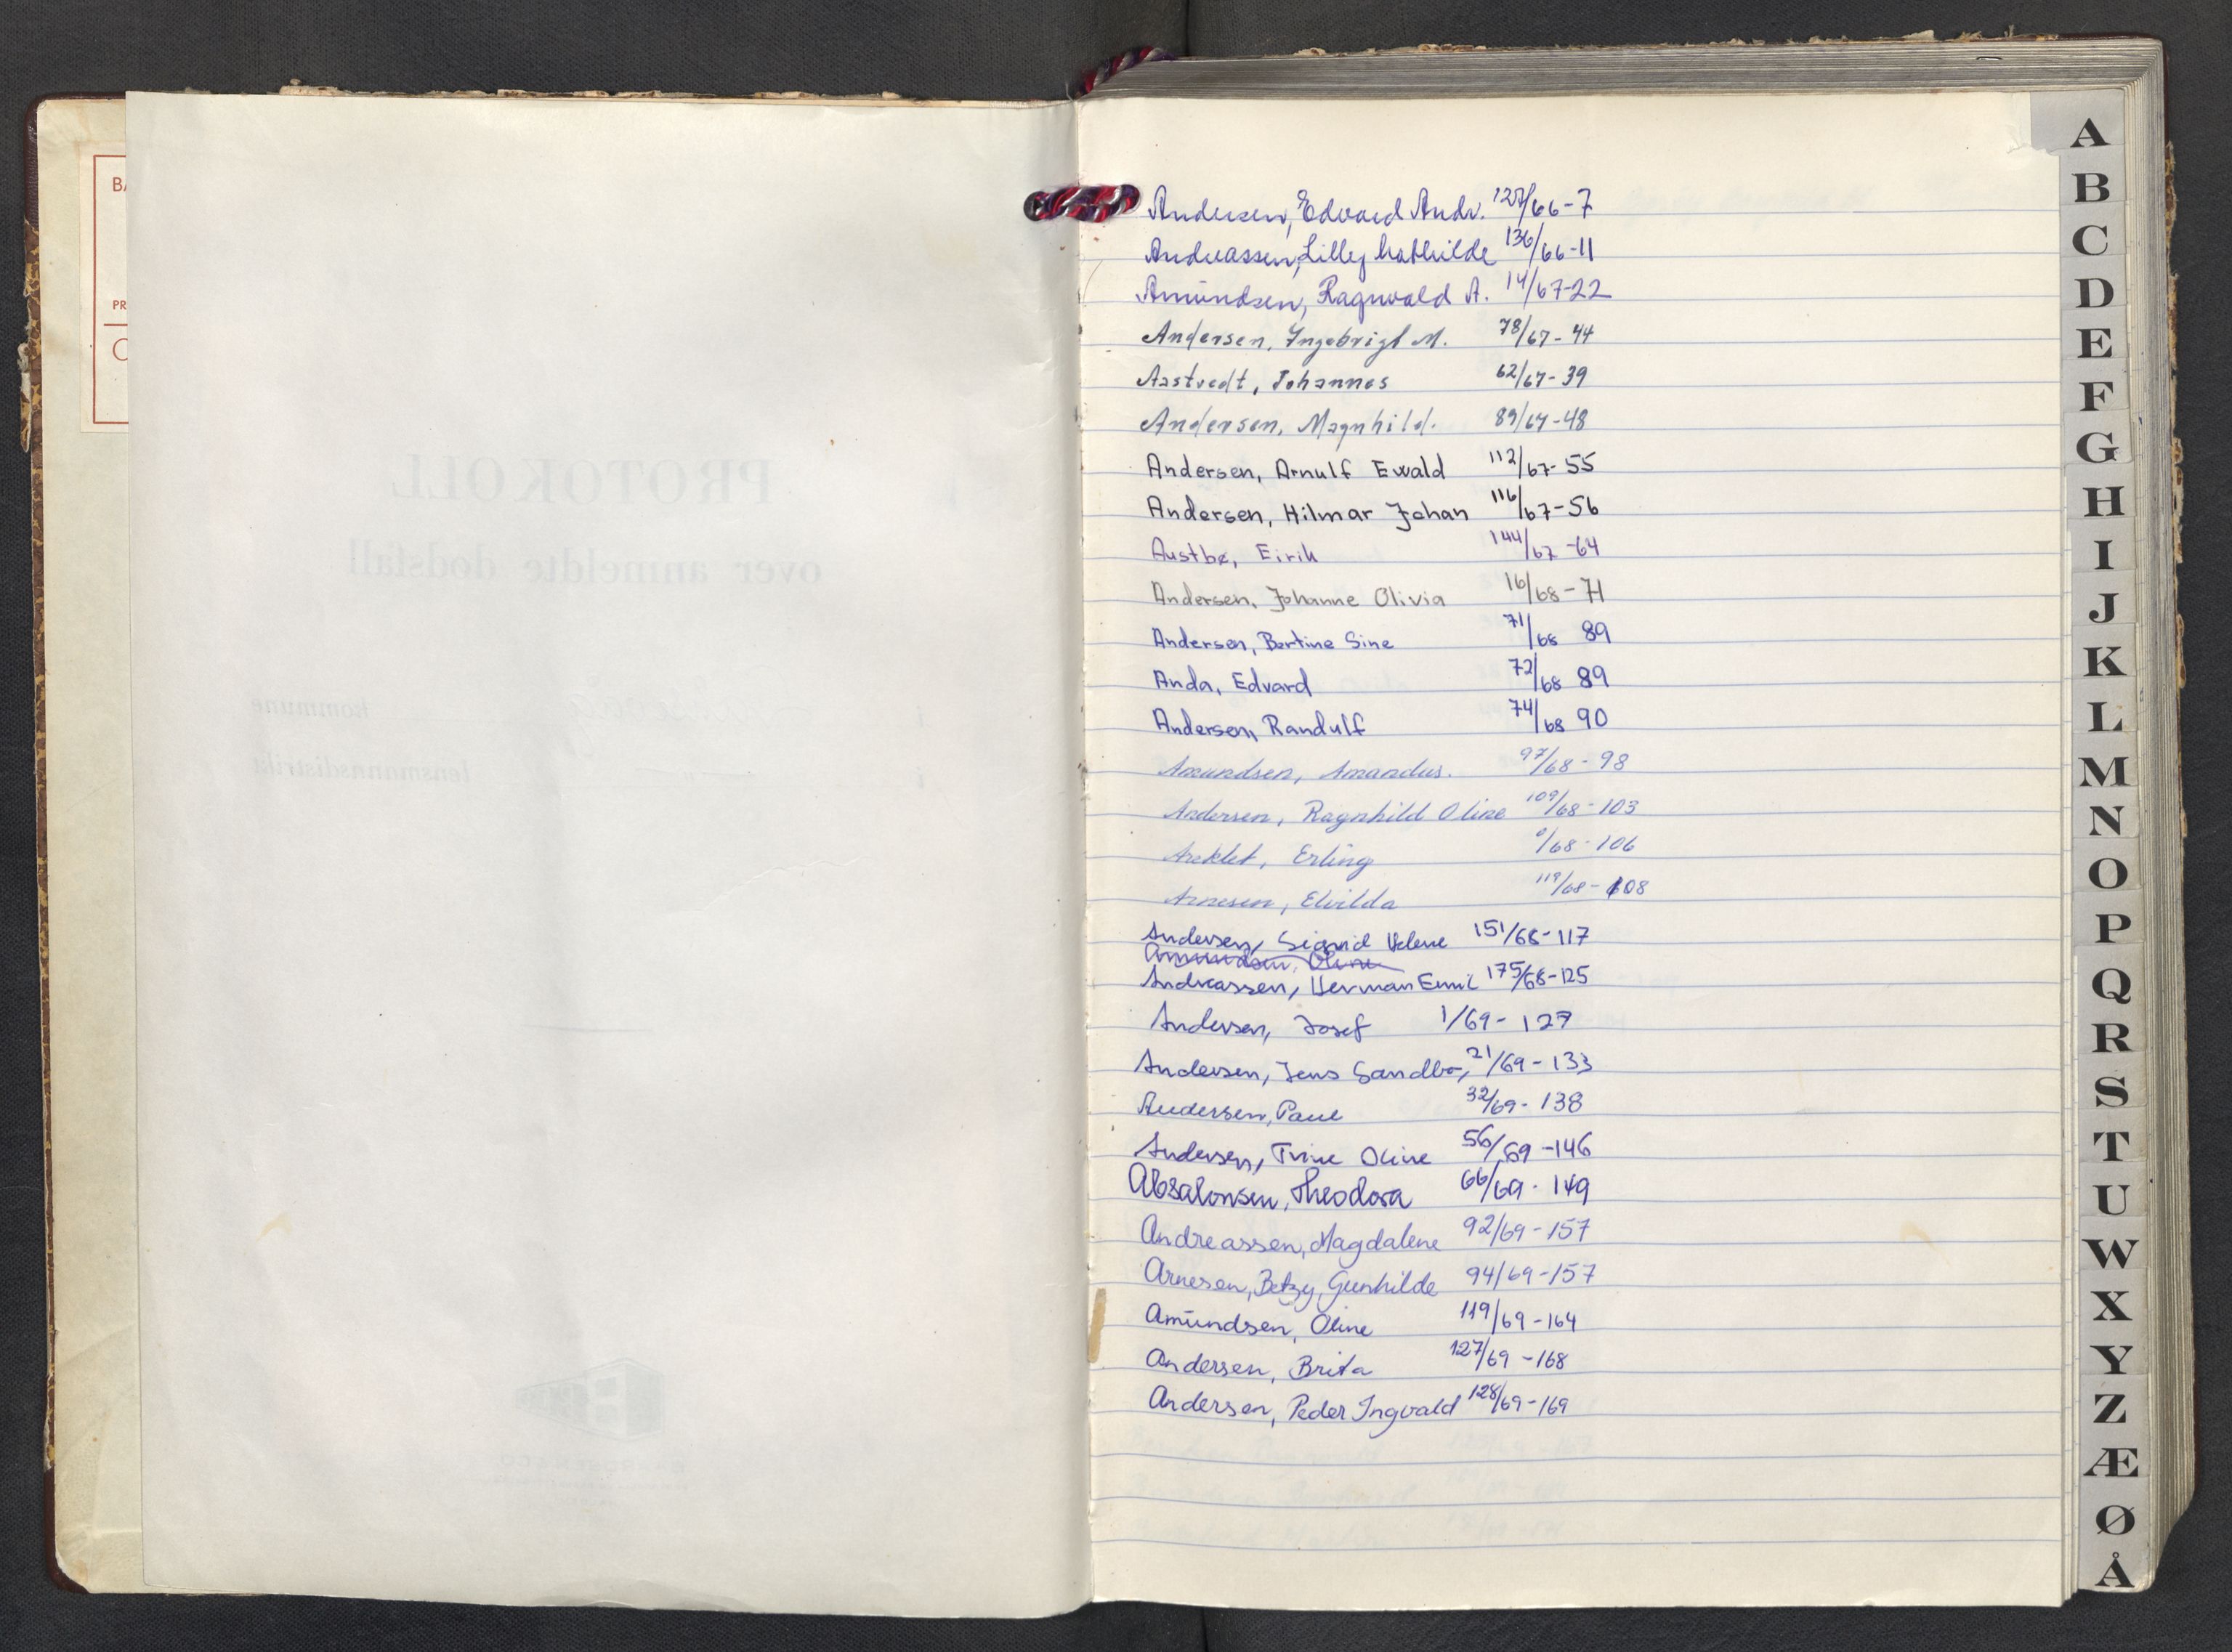 BA
PR
O
PROTOKOLL
over anmeldte dødsfall
i kommune
i lensmannsdistrikt
Andersen, Edvard Andr. 127/66-7
Andreassen, Lilly Mathilde 136/66-11
Amundsen, Ragnvald A. 14/67-22
Andersen, Ingebrigt M. 78/67-44
Aastvedt, Johannes 62/67-39
Andersen, Magnhild. 89/67-48
Andersen, Arnulf Ewald 112/67-55
Andersen, Hilmar Johan 116/67-56
Austbø, Eirik 144/67-64
Andersen, Johanne Olivia 16/68-71
Andersen, Bertine Sine 71/68 89
Anda, Edvard 72/68 89
Andersen, Randulf 74/68 90
Amundsen, Amandus. 97/68-98
Andersen, Ragnhild Oline 109/68-103
Erling /68-106
Arnesen, Elvilda 119/68-108
Andersen, Sigrid Helene 151/68-117
Amundsen, Oline
Andreassen, Herman Emil 175/68-125
Andersen, Josef 1/69-127
Andersen, Jens Sandbo, 21/69-133
Andersen, Paul 32/69-138
Andersen, Trine Oline 56/69-146
Absalonsen, Theodora 66/69-149
Andreassen, Magdalene 92/69-157
Arnesen, Betzy, Gunhilde 94/69-157
Amundsen, Oline 119/69-164
Andersen, Brita 127/69-168
Andersen, Peder Ingvald 128/69-169
A
B
C
D
E
F
G
H
I
J
K
L
M
N
O
P
Q
R
S
T
U
W
X
Y
Z
Æ
Ø
Å